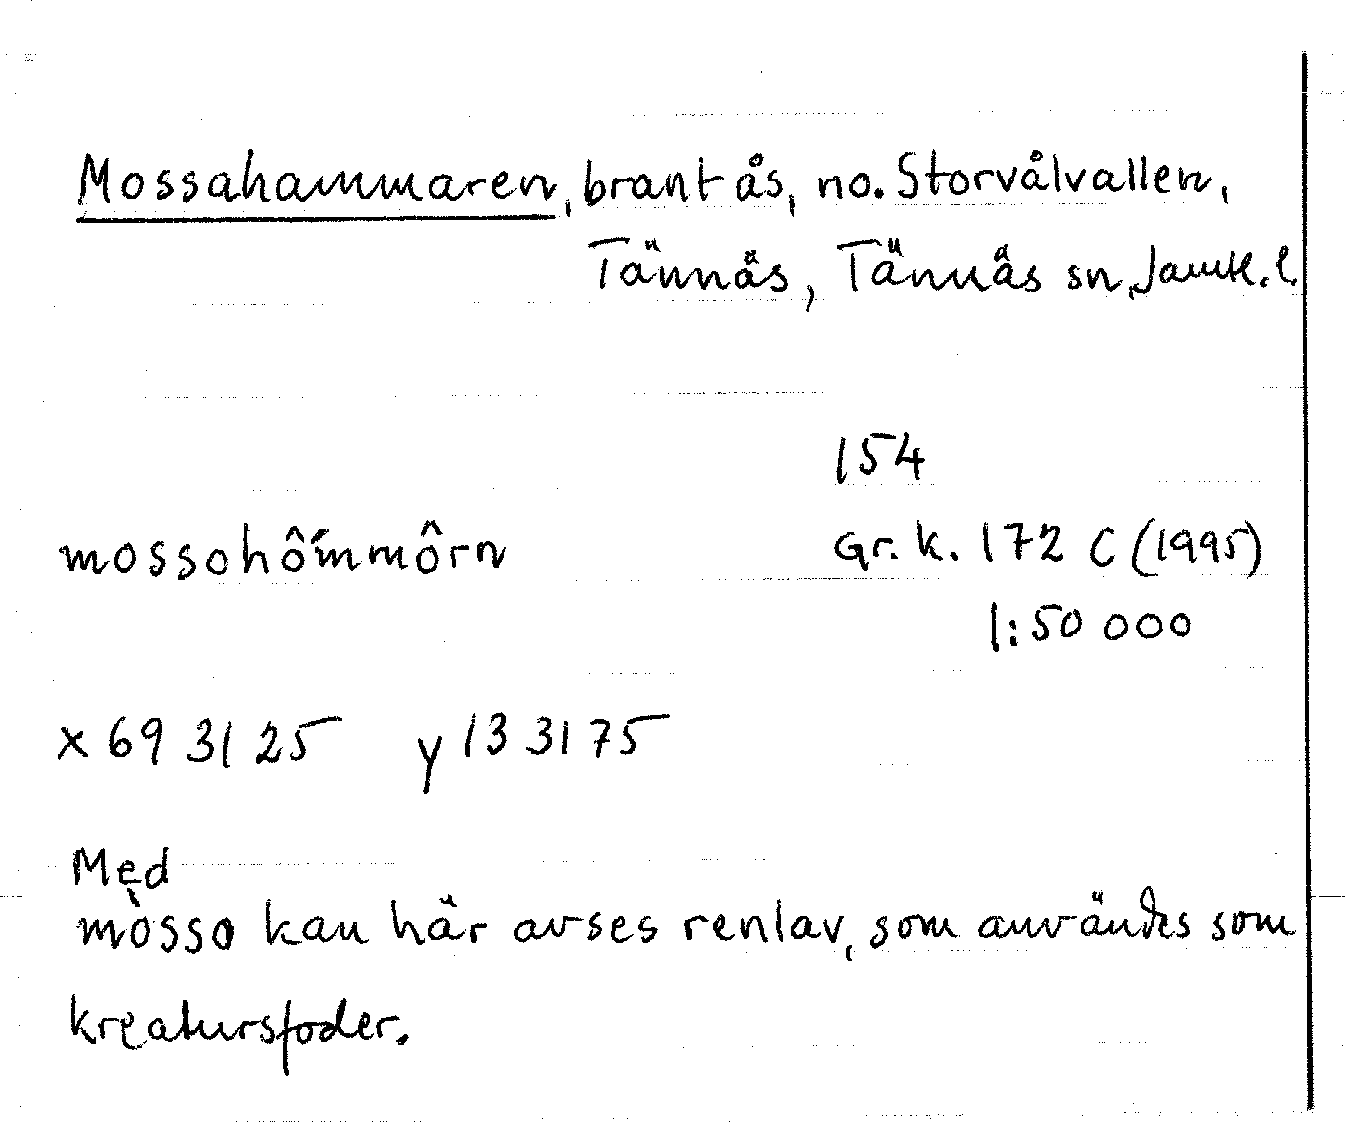 Mossahammaren, brant ås, no. Storvålvallen,
Tännäs, Tännäs sn, Jämtl. l.
154
mossohô´mmôrn Gr. k. 172 C (1995)
1:50 000
x 69 31 25 y 13 31 75
Med
mòsso kan här avses renlav, som användes som
kreatursfoder.